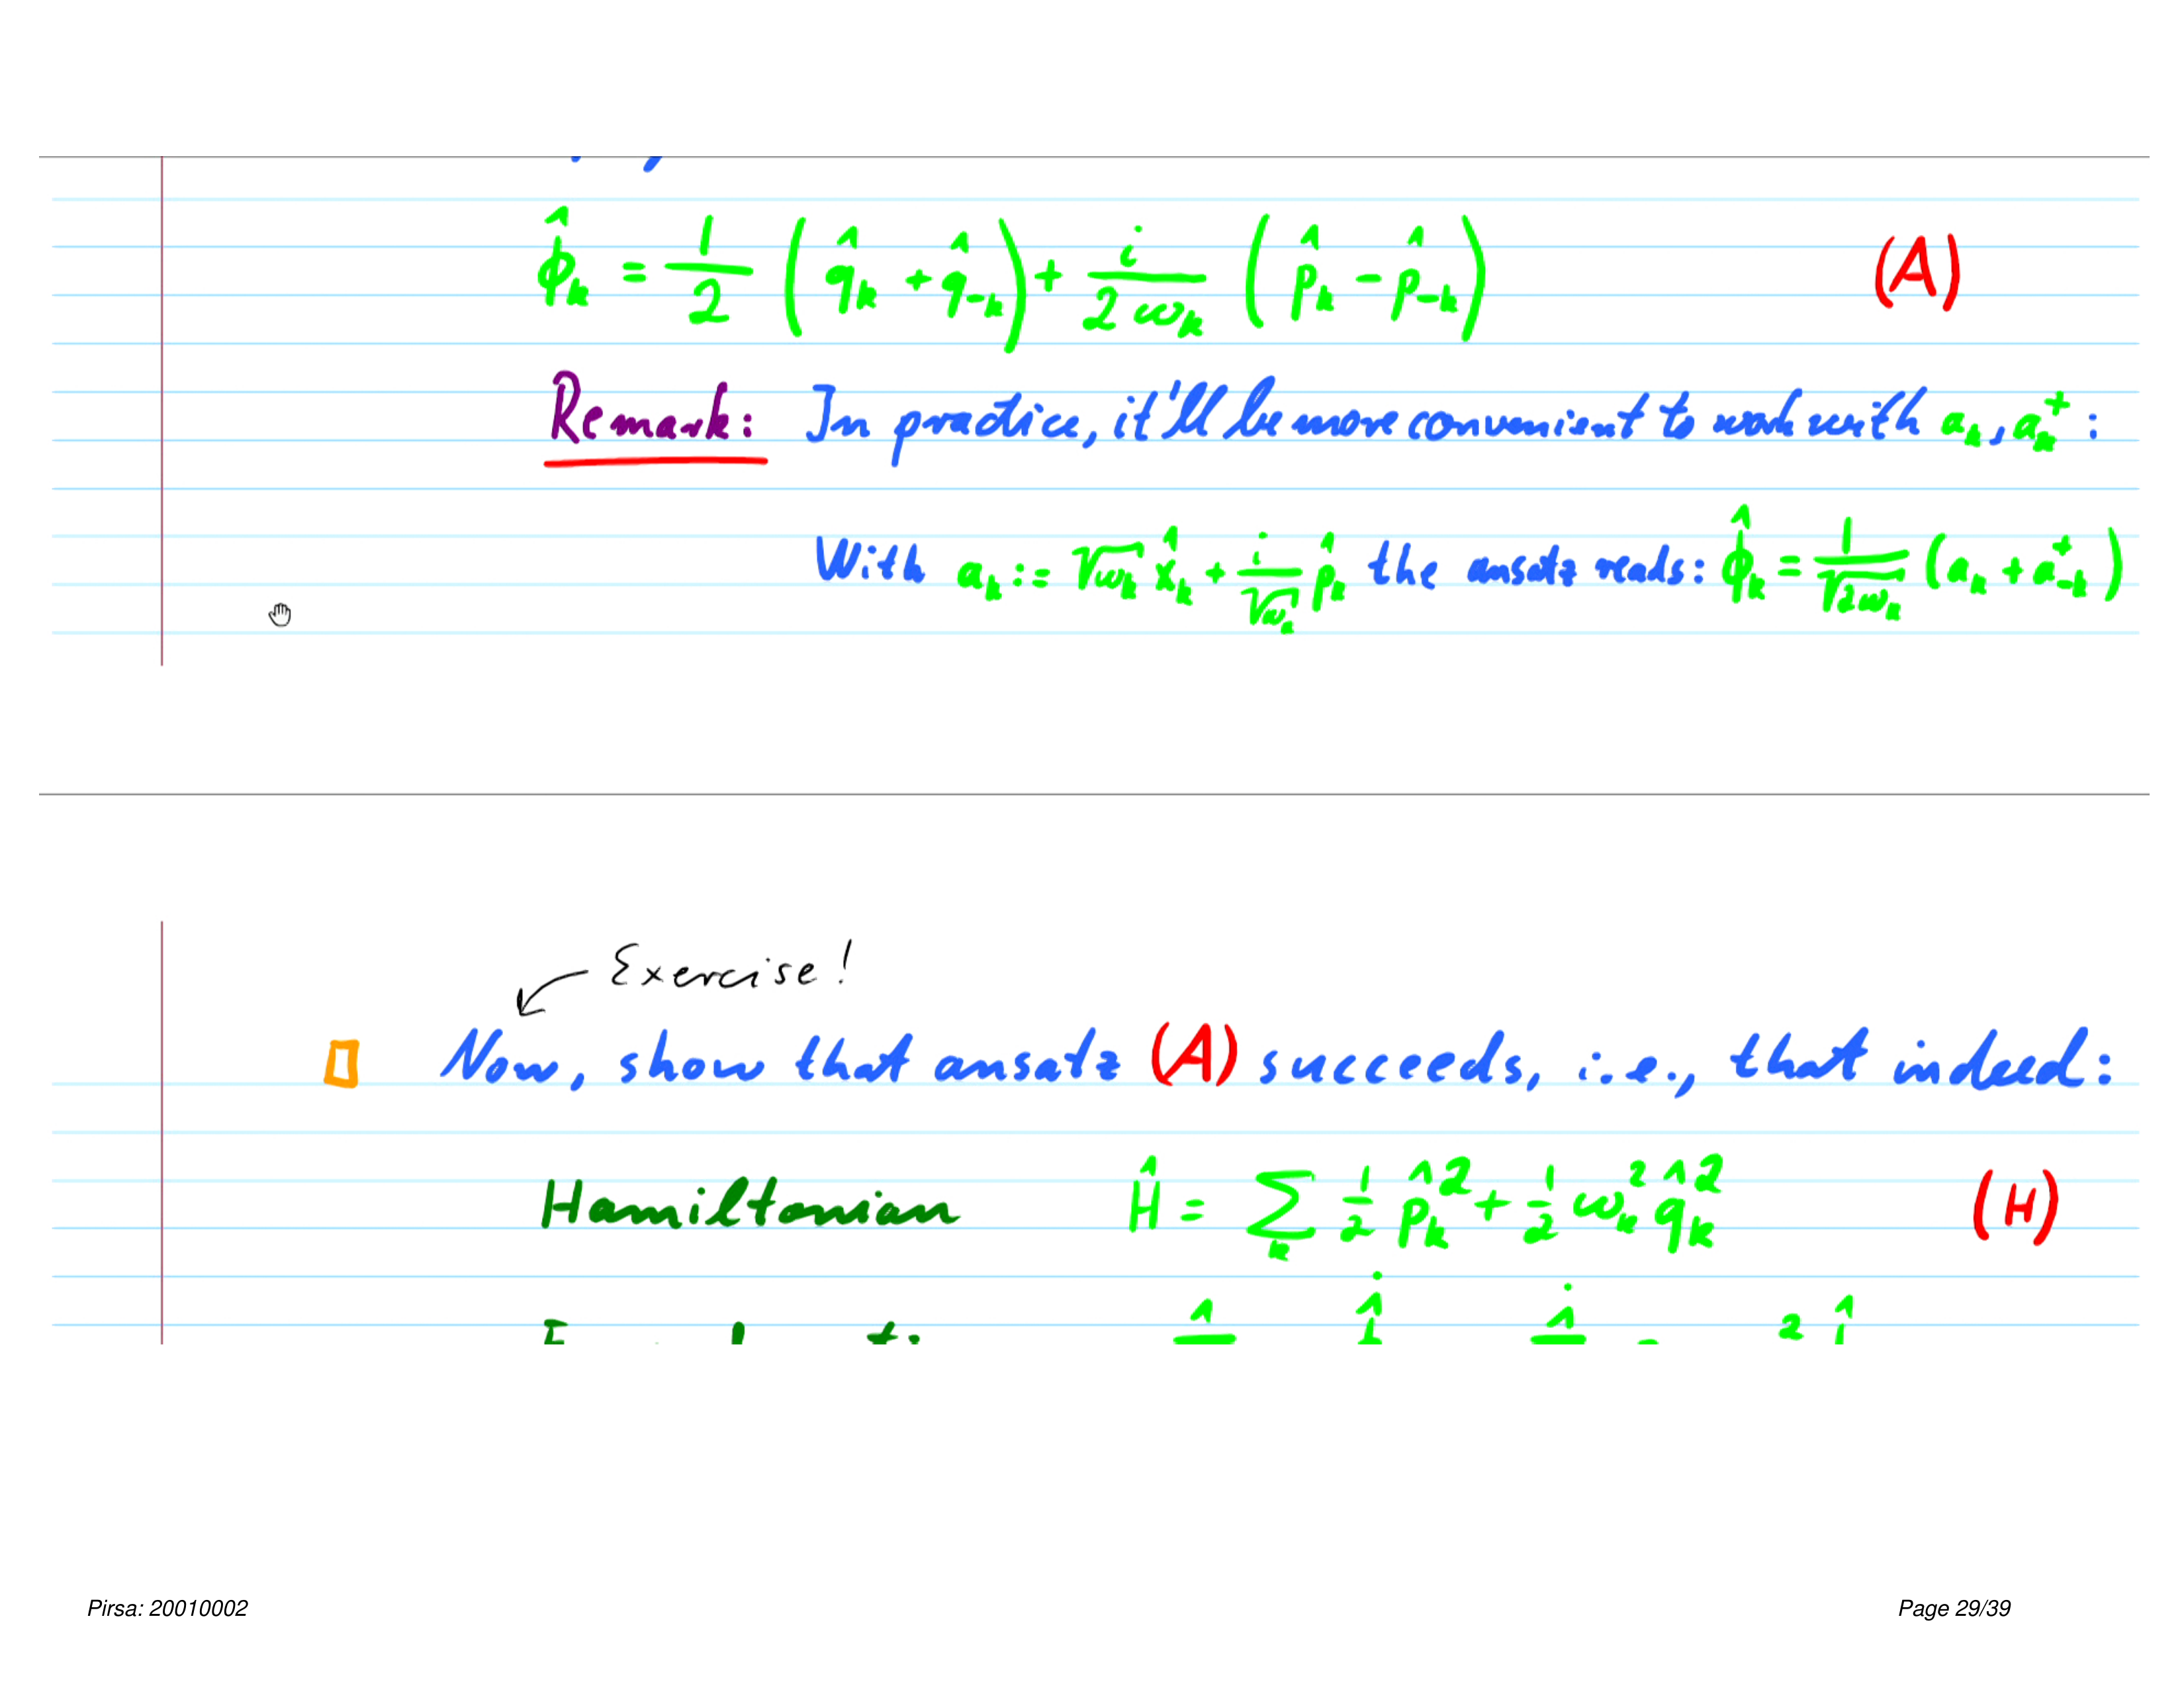 φ̂_k = 1/2 (q̂_k + q̂_-k) + i/(2ω_k) (p̂_k - p̂_-k) (A)
Remark: In practice, it'll be more convenient to work with a_k, a_k^+ :
With a_k := √ω_k x̂_k + i/√ω_k p̂_k the ansatz reads: φ̂_k = 1/√(2ω_k) (a_k + a_-k^+)
Exercise!
Now, show that ansatz (A) succeeds, i.e., that indeed:
Hamiltonian Ĥ = Σ_k 1/2 p̂_k^2 + 1/2 ω_k^2 q̂_k^2 (H)
Pirsa: 20010002 Page 29/39